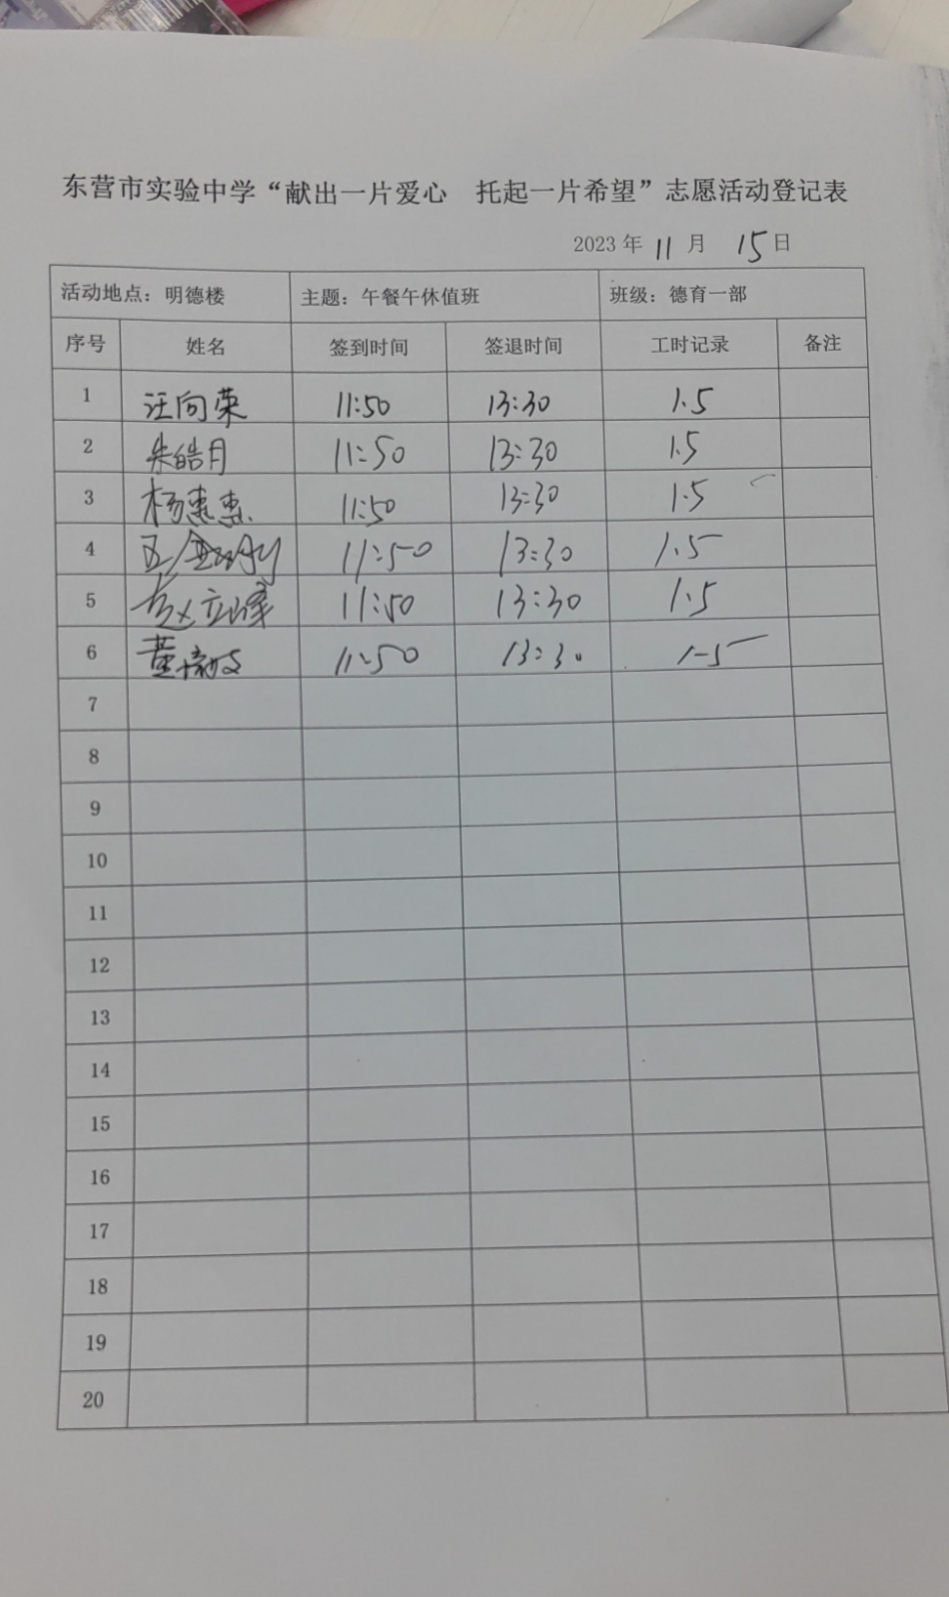 东营市实验中学“献出一片爱心 托起一片希望”志愿活动登记表
2023 年 11 月 15 日
活动地点：明德楼 主题：午餐午休值班 班级：德育一部
序号 姓名 签到时间 签退时间 工时记录 备注
1 汪向荣 11:50 13:30 1.5
2 朱皓月 11:50 13:30 1.5
3 杨惠惠 11:50 13:30 1.5
4 11:50 13:30 1.5
5 赵立峰 11:50 13:30 1.5
6 11:50 13:30 1.5
7
8
9
10
11
12
13
14
15
16
17
18
19
20